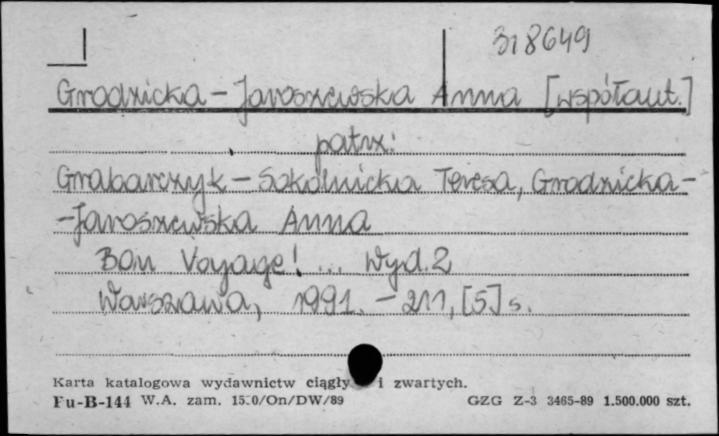 318649
Grodzicka-Jaroszewska Anna [współaut.]
patrz:
Grabarczyk-Sokolnicka Teresa, Grodzicka-
-Jaroszewska Anna
Bon Voyage! ... Wyd. 2
Warszawa, 1991. - 211, [5] s.
Karta katalogowa wydawnictw ciągły i zwartych.
Pu-B-144 W.A. zam. 1500/On/DW/89 GZG Z-3 3465-89 1.500.000 szt.